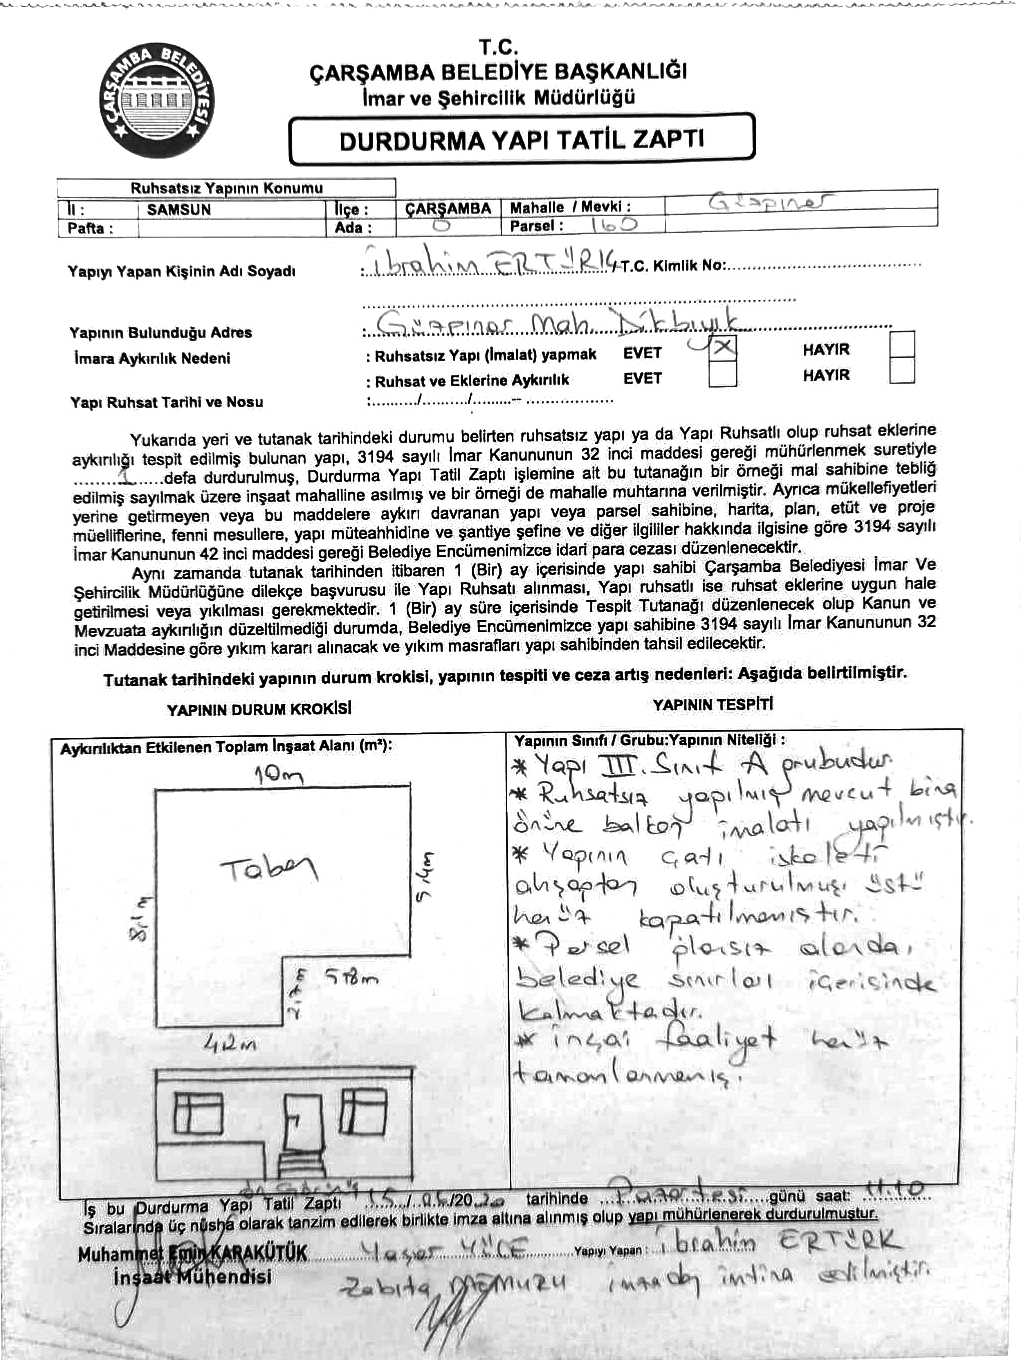 ÇARŞAMBA BELEDİYESİ
T.C.
ÇARŞAMBA BELEDİYE BAŞKANLIĞI
İmar ve Şehircilik Müdürlüğü
DURDURMA YAPI TATİL ZAPTI
Ruhsatsız Yapının Konumu
İl : SAMSUN İlçe : ÇARŞAMBA Mahalle / Mevki : Gürpınar
Pafta : Ada : 0 Parsel : 160
Yapıyı Yapan Kişinin Adı Soyadı : İbrahim ERTÜRK T.C. Kimlik No:
Yapının Bulunduğu Adres : Gürpınar Mah. Dikbıyık
İmara Aykırılık Nedeni : Ruhsatsız Yapı (İmalat) yapmak EVET X HAYIR
: Ruhsat ve Eklerine Aykırılık EVET HAYIR
Yapı Ruhsat Tarihi ve Nosu :........../........../.........-- ..................
Yukarıda yeri ve tutanak tarihindeki durumu belirten ruhsatsız yapı ya da Yapı Ruhsatlı olup ruhsat eklerine
aykırılığı tespit edilmiş bulunan yapı, 3194 sayılı İmar Kanununun 32 inci maddesi gereği mühürlenmek suretiyle
.........1......defa durdurulmuş, Durdurma Yapı Tatil Zaptı işlemine ait bu tutanağın bir örneği mal sahibine tebliğ
edilmiş sayılmak üzere inşaat mahalline asılmış ve bir örneği de mahalle muhtarına verilmiştir. Ayrıca mükellefiyetleri
yerine getirmeyen veya bu maddelere aykırı davranan yapı veya parsel sahibine, harita, plan, etüt ve proje
müelliflerine, fenni mesullere, yapı müteahhidine ve şantiye şefine ve diğer ilgililer hakkında ilgisine göre 3194 sayılı
İmar Kanununun 42 inci maddesi gereği Belediye Encümenimizce idari para cezası düzenlenecektir.
Aynı zamanda tutanak tarihinden itibaren 1 (Bir) ay içerisinde yapı sahibi Çarşamba Belediyesi İmar Ve
Şehircilik Müdürlüğüne dilekçe başvurusu ile Yapı Ruhsatı alınması, Yapı ruhsatlı ise ruhsat eklerine uygun hale
getirilmesi veya yıkılması gerekmektedir. 1 (Bir) ay süre içerisinde Tespit Tutanağı düzenlenecek olup Kanun ve
Mevzuata aykırılığın düzeltilmediği durumda, Belediye Encümenimizce yapı sahibine 3194 sayılı İmar Kanununun 32
inci Maddesine göre yıkım kararı alınacak ve yıkım masrafları yapı sahibinden tahsil edilecektir.
Tutanak tarihindeki yapının durum krokisi, yapının tespiti ve ceza artış nedenleri: Aşağıda belirtilmiştir.
YAPININ DURUM KROKİSİ
YAPININ TESPİTİ
Aykırılıktan Etkilenen Toplam İnşaat Alanı (m²):
10m
Taban
5,4m
8,1m
5,8m
2,7m
4,2m
Ön Görünüş
Yapının Sınıfı / Grubu:Yapının Niteliği :
* Yapı III. Sınıf A grubudur.
* Ruhsatsız yapılmış mevcut bina
önüne balkon imalatı yapılmıştır.
* Yapının çatı iskeleti
ahşaptan oluşturulmuş, üstü
henüz kapatılmamıştır.
* Parsel plansız alanda,
belediye sınırları içerisinde
kalmaktadır.
* İnşai faaliyet henüz
tamamlanmamış.
İş bu Durdurma Yapı Tatil Zaptı 15./.06./2020 tarihinde ...Pazartesi....günü saat: 11:10
Sıralarında üç nüsha olarak tanzim edilerek birlikte imza altına alınmış olup yapı mühürlenerek durdurulmuştur.
Muhammet Emin KARAKÜTÜK Yaşar YÜCE Yapıyı Yapan : İbrahim ERTÜRK
İnşaat Mühendisi Zabıta MEMURU imzadan imtina edilmiştir.